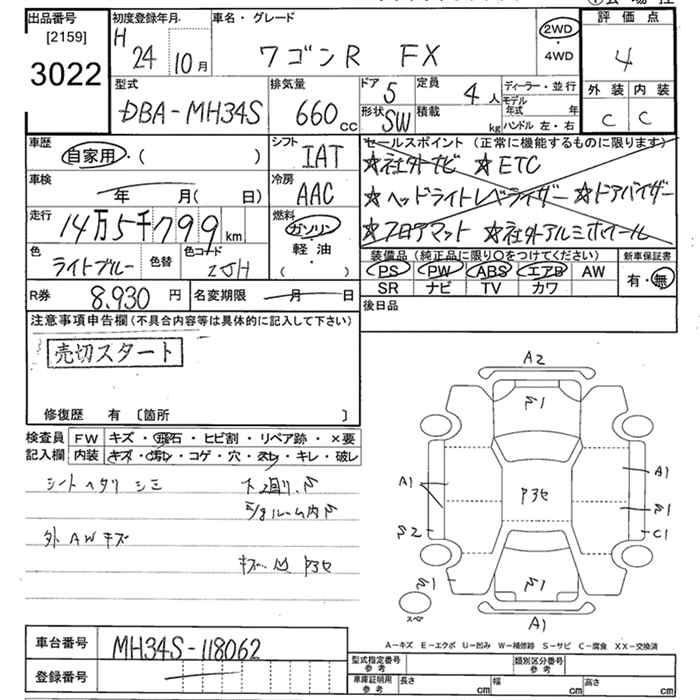 出品番号
[2159]
3022
初度登録年月
H 24 10月
車名・グレード
ワゴンR FX
2WD
・
4WD
評価点
4
型式
DBA-MH34S
排気量
660cc
ドア 5
形状 SW
定員 4人
積載 kg
ディーラー・並行
モデル年式 年
ハンドル 左・右
外装 内装
C C
車歴
自家用・( )
シフト IAT
セールスポイント (正常に機能するものに限ります)
☆社外ナビ ☆ETC
☆ヘッドライトレベライザー ☆ドアバイザー
☆フロアマット ☆社外アルミホイール
車検
年 月( 日)
冷房 AAC
走行
14万5千799km
燃料
ガソリン
・
軽油
( )
色
ライトブルー
色替
色コード
ZJH
装備品 (純正品に限り〇をつけてください)
PS PW ABS エアB AW
SR ナビ TV カワ
新車保証書
有・無
R券 8,930円
名変期限 月 日
後日品
注意事項申告欄(不具合内容等は具体的に記入して下さい)
売切スタート
修復歴 有 〔箇所 〕
検査員
記入欄
FW キズ・飛石・ヒビ割・リペア跡・×要
内装 キズ・汚レ・コゲ・穴・スレ・キレ・破レ
シートヘタリ シミ
外 AWキズ
A2
A1
A1
C1
A1
スペア
A-キズ E-エクボ U-凹み W-補修跡 S-サビ C-腐食 XX-交換済
車台番号 MH34S-118062
登録番号
型式指定番号
参考
類別区分番号
参考
車庫証明用
参考
長さ cm 幅 cm 高さ cm